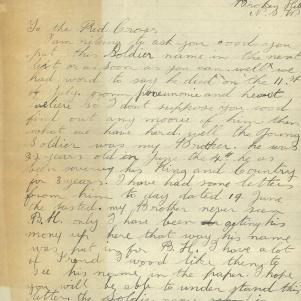 Broken Hill
N.S.W.
To the Red Cross
I am writing to ask you could you
put this Soldier name in the next
list or as soon as you can. well we
had word to say he died on the 11th
of July. from pneumonia and heart
so I don't suppose you would
find out any moore of him then
what we have herd. well the Young
Soldier was my Brother. he was
years old on June the 4th he as
been serving his King and Country
for 3 years. I have had some letters
from him to say dated 19 June
the lasted. my Brother never see
B.H. only I have been getting his
money up here that way his name
was put in for B.H. I have a lot
of Friend I would like them to
see his name in the paper. I hope
you will be able to under stand this
letter the Soldier name